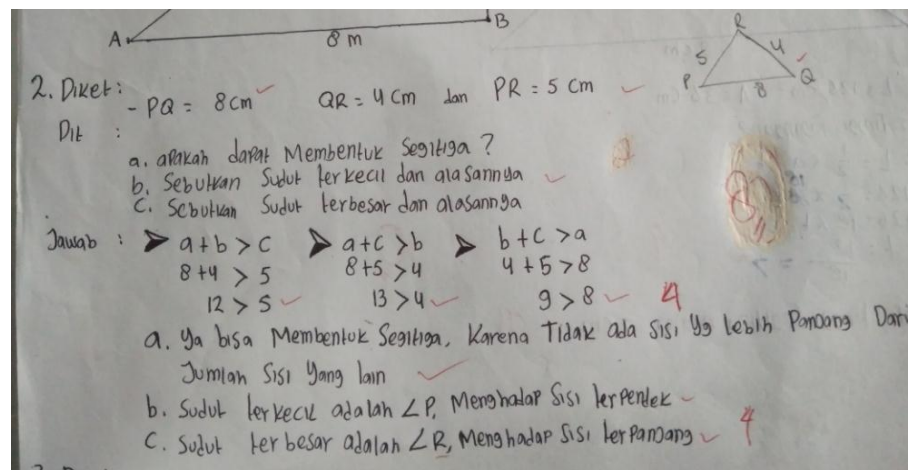 A B
8 m
R
5 4
P 8 Q
2. Diket:
- PQ = 8 cm QR = 4 cm dan PR = 5 cm
Dit :
a. apakah dapat Membentuk Segitiga ?
b. Sebutkan Sudut terkecil dan alasannya
C. Sebutkan Sudut terbesar dan alasannya
Jawab : ➤ a+b > c ➤ a+c > b ➤ b+c > a
8+4 > 5 8+5 > 4 4+5 > 8
12 > 5 13 > 4 9 > 8 4
a. Ya bisa Membentuk Segitiga, Karena Tidak ada sisi yg lebih Panjang Dari
Jumlah Sisi Yang lain
b. Sudut terkecil adalah ∠P, Menghadap Sisi terpendek
C. Sudut terbesar adalah ∠R, Menghadap Sisi terpanjang 4